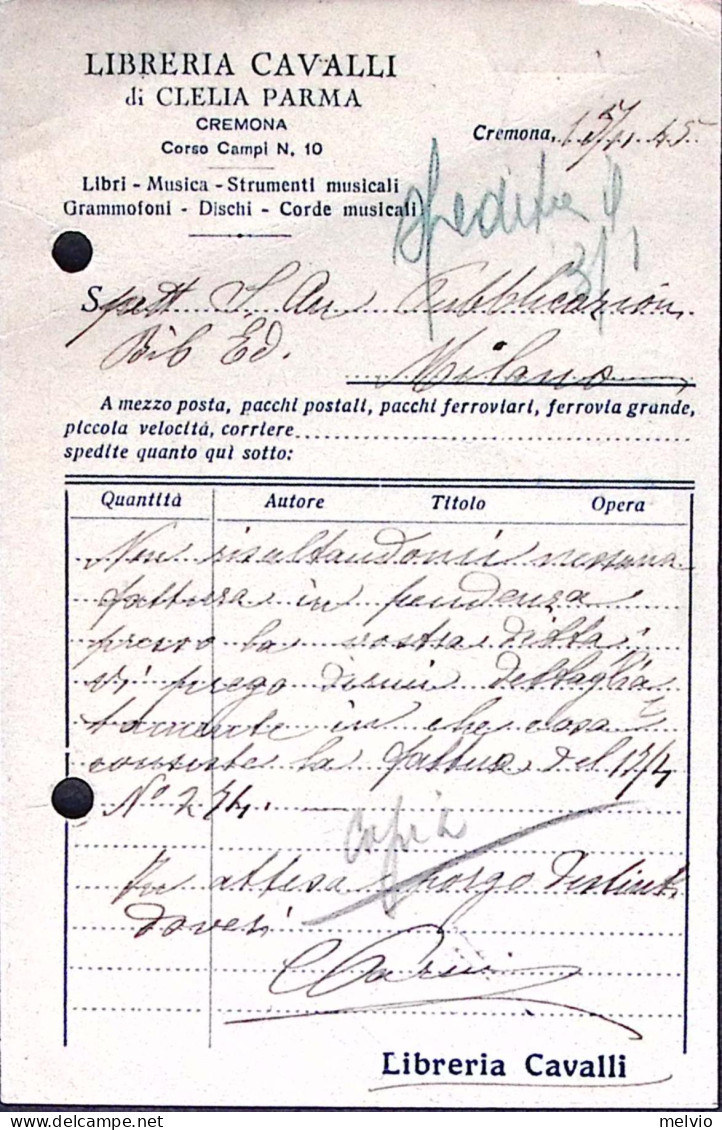 LIBRERIA CAVALLI
di CLELIA PARMA
CREMONA
Corso Campi N. 10
Libri - Musica - Strumenti musicali
Grammofoni - Dischi - Corde musicali
Cremona,
Spett S. An Pubblicazion
Bib Ed.
Milano
A mezzo posta, pacchi postali, pacchi ferroviari, ferrovia grande,
piccola velocità, corriere
spedite quanto quì sotto:
Quantità Autore Titolo Opera
Non risultandomi nessuna
fattura in pendenza
presso la vostra ditta
vi prego dirmi dettaglia
tamente in che cosa
consiste la fattura del
N° 274.
copia
In attesa porgo distinti
doveri
Libreria Cavalli
delcampe.net
melvio